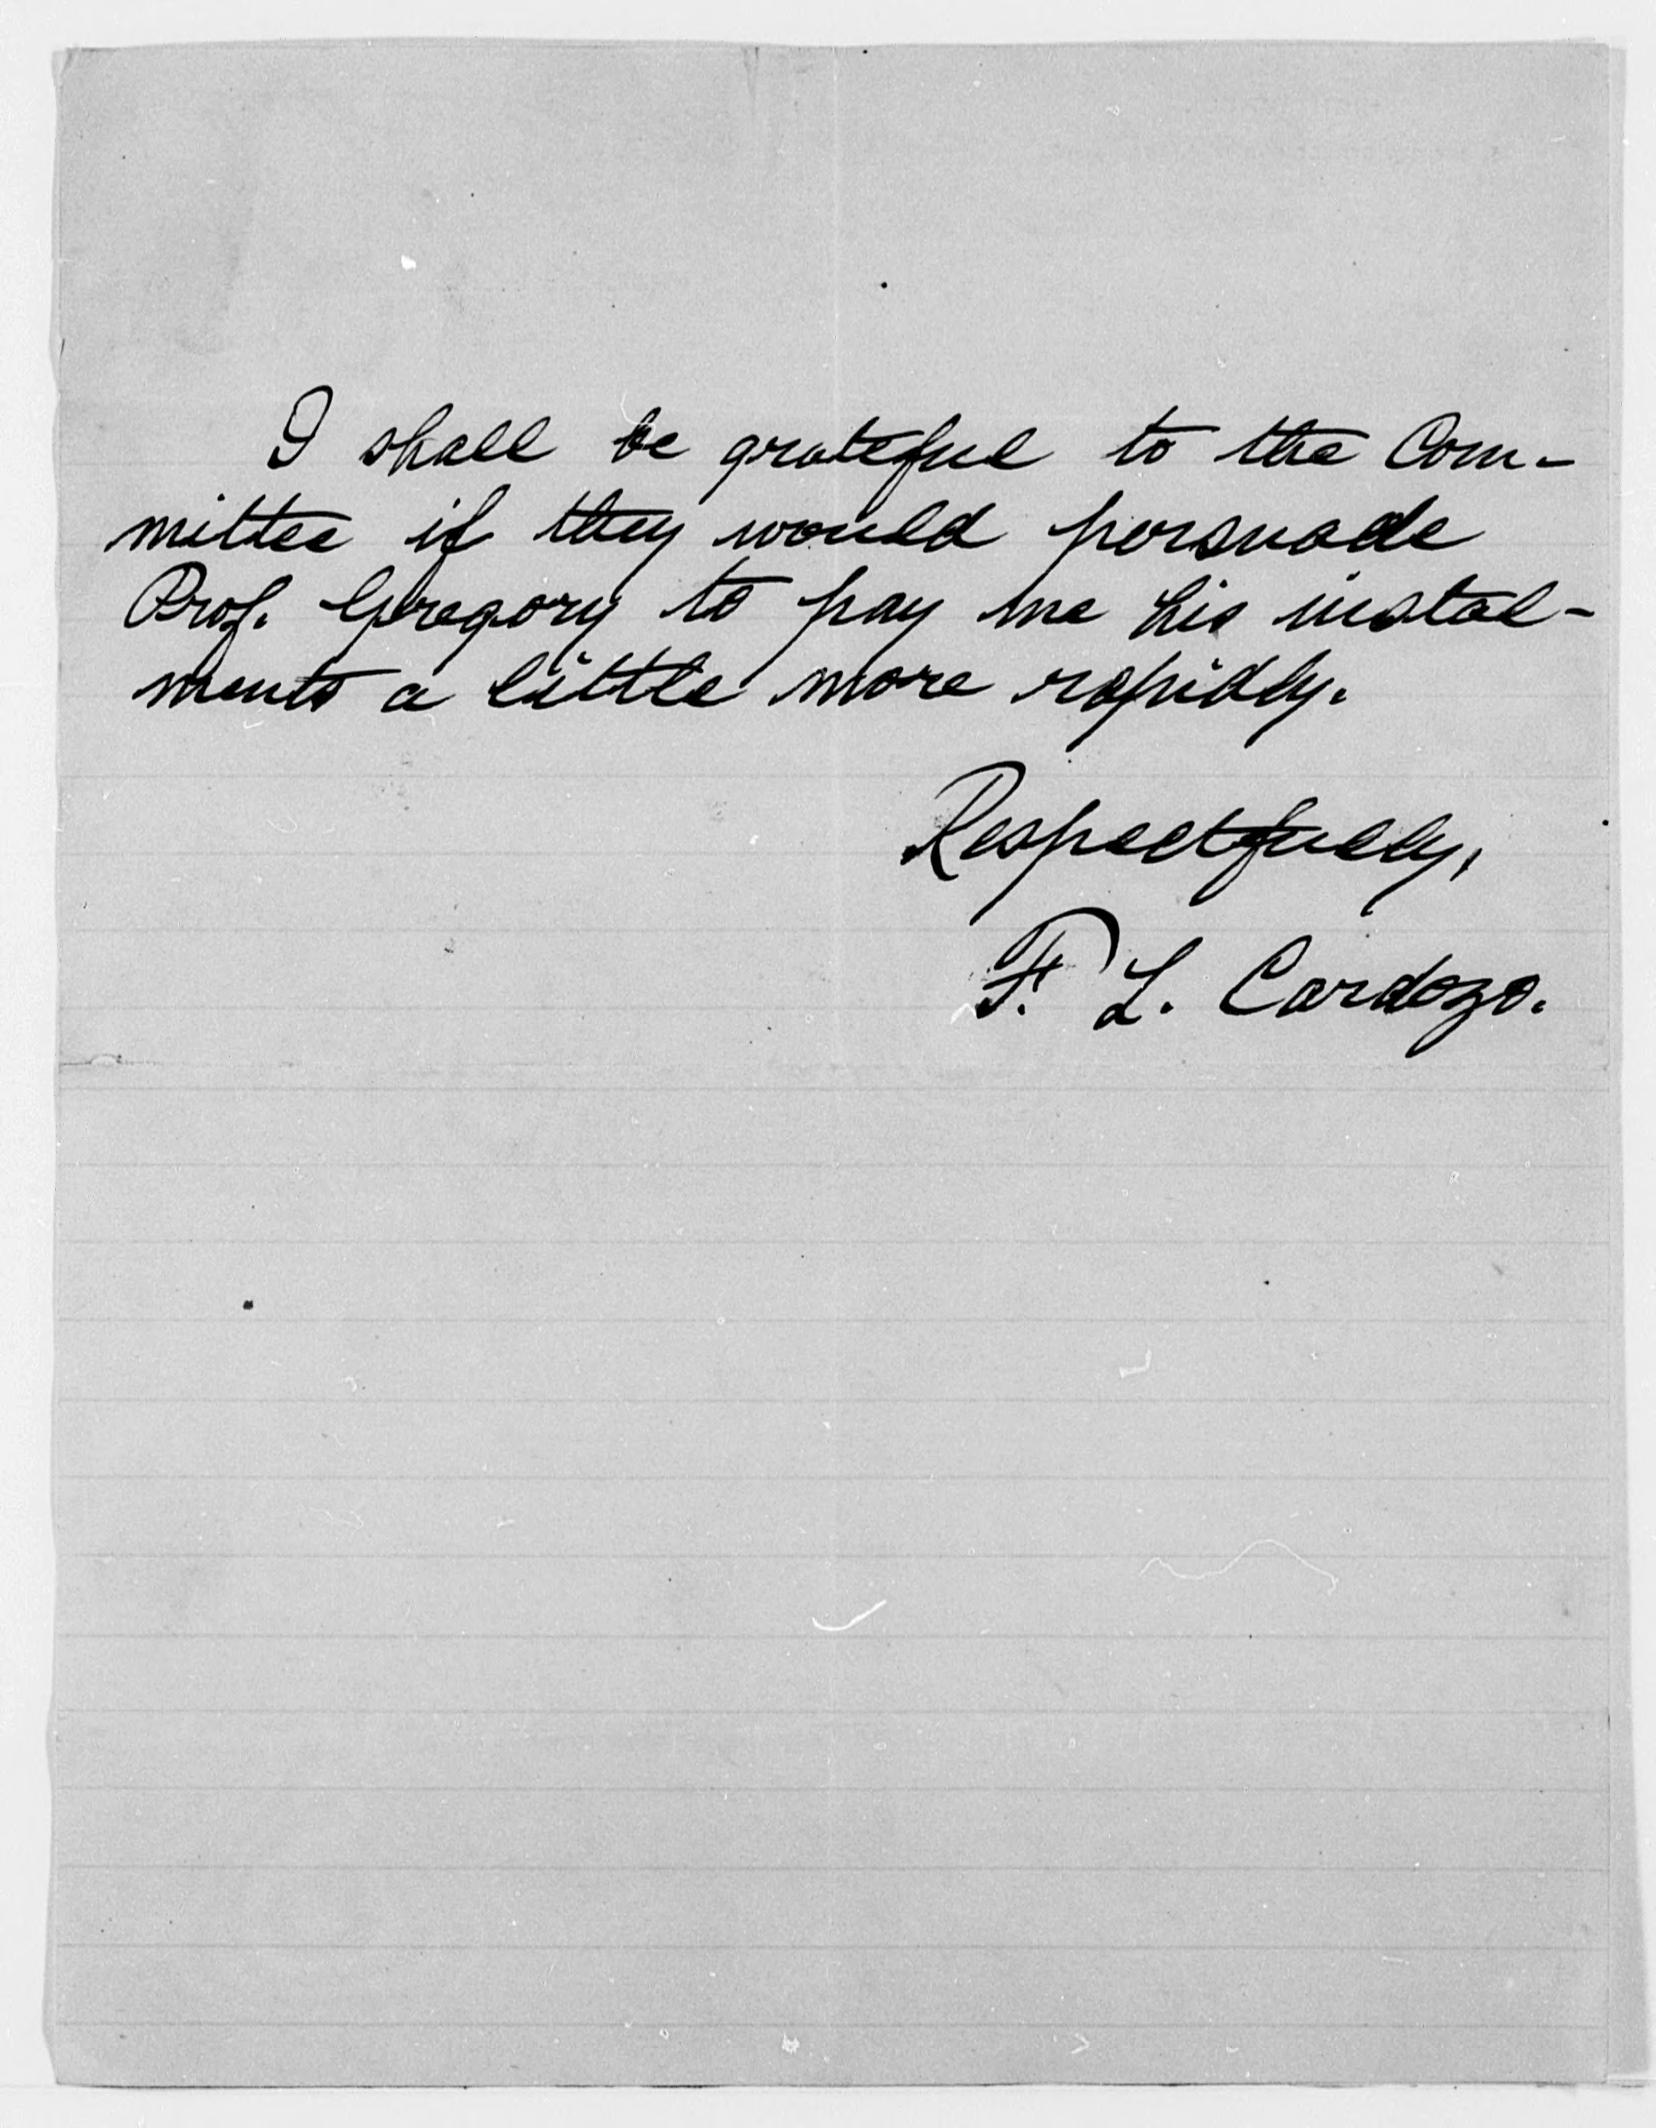 I shall be grateful to the Com-
mittee if they would persuade
Prof. Gregory to pay me his instal-
ments a little more rapidly.
Respectfully,
F. L. Cardozo.